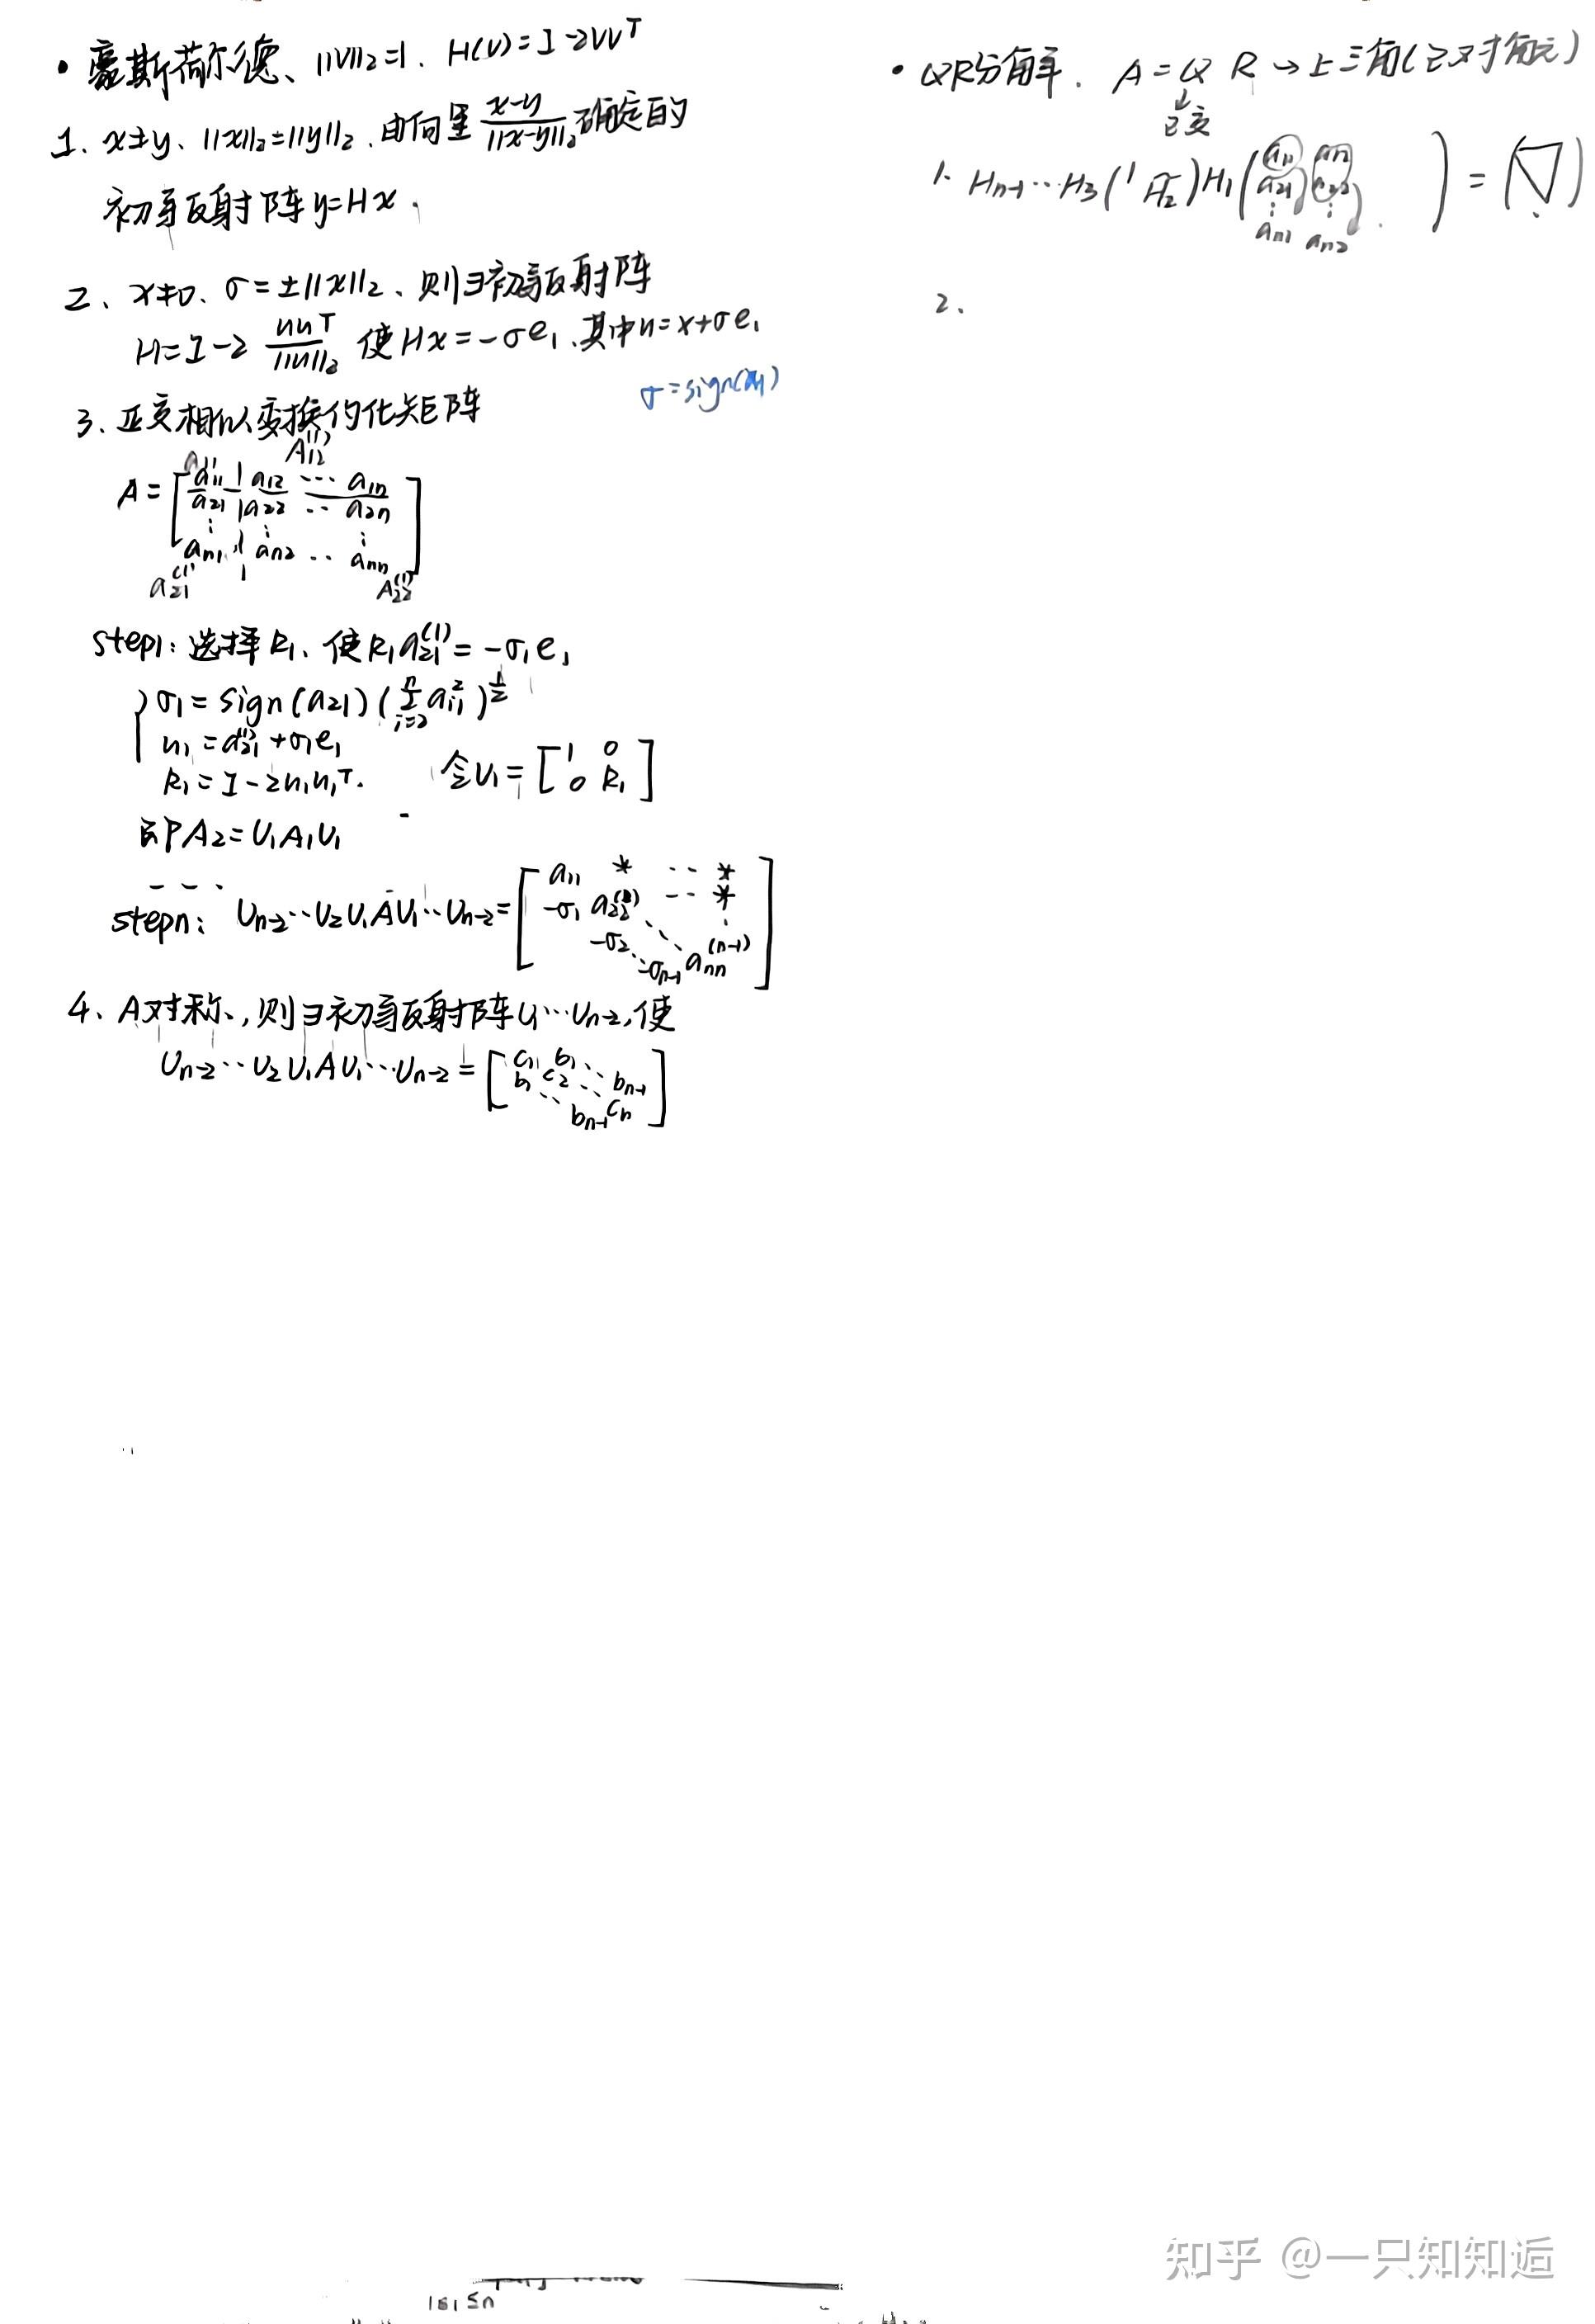 • 豪斯荷尔德、||V||₂=1. H(V)=I-2VVᵀ
1、x≠y、||x||₂=||y||₂.由向量 (x-y)/||x-y||₂ 确定的
初等反射阵y=Hx.
2、x≠0、σ=±||x||₂、则∃初等反射阵
H=I-2 uuᵀ/||u||₂ 使Hx=-σe₁、其中u=x+σe₁
σ=sign(x₁)
3、正交相似变换约化矩阵
a₁₁ A₁₂⁽¹⁾
A=[a₁₁ a₁₂ ⋯ a₁ₙ
a₂₁ a₂₂ ‥ a₂ₙ
⋮ ⋮ ⋮
aₙ₁ aₙ₂ ‥ aₙₙ]
a₂₁⁽¹⁾ A₂₂⁽¹⁾
step1:选择R₁、使R₁a₂₁⁽¹⁾=-σ₁e₁
σ₁=sign(a₂₁)(Σᵢ₌₂ⁿ aᵢ₁²)^½
u₁=a₂₁⁽¹⁾+σ₁e₁
R₁=I-2u₁u₁ᵀ. 令U₁=[1 0
0 R₁]
即A₂=U₁A₁U₁
- - -
stepn: Uₙ₋₂⋯U₂U₁AU₁⋯Uₙ₋₂=[a₁₁ * ‥ *
-σ₁ a₂₂⁽²⁾ ‥ *
-σ₂ ⋱ ⋱ ⋮
-σₙ₋₁ aₙₙ⁽ⁿ⁻¹⁾]
4、A对称,则∃初等反射阵U₁⋯Uₙ₋₂,使
Uₙ₋₂⋯U₂U₁AU₁⋯Uₙ₋₂=[c₁ b₁ ⋱
b₁ c₂ ⋱ bₙ₋₁
⋱ bₙ₋₁ cₙ]
• QR分解. A=Q R→上三角(正对角元)
↓
正交
1. Hₙ₋₁⋯H₃(1 H̃₂)H₁(a₁₁ a₁₂
a₂₁ a₂₂
⋮ ⋮
aₙ₁ aₙ₂)=(▽)
2、
1≤i≤n
知乎 @一只知知逅